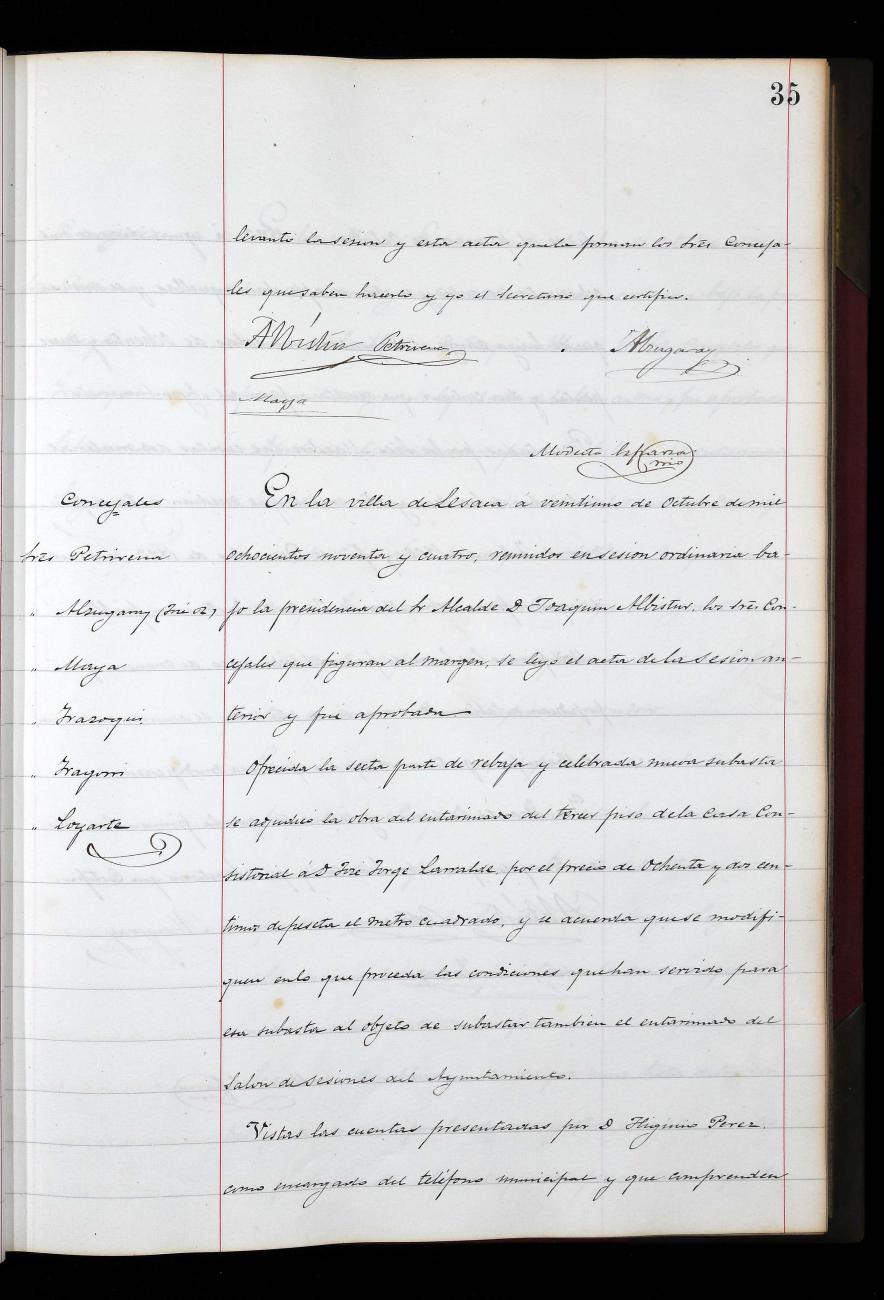 35
levantó la sesion y esta acta que la firman los Srẽs Conceja-
les que saben hacerlo y yo el Secretario que certifico.
Albistur Petrirena Alzugaray
Maya
Modesto Esparza
Srio
Concejales
Srẽs Petrirena
" Alzugaray (José Ma)
" Maya
" Irazoqui
" Iragorri
" Loyarte
En la villa de Lesaca á veintiuno de Octubre de mil
ochocientos noventa y cuatro, reunidos en sesion ordinaria ba-
jo la presidencia del Sr Alcalde D Joaquin Albistur, los Srẽs Con-
cejales que figuran al margen, se leyó el acta de la sesion an-
terior y fué aprobada
Ofrecida la sesta parte de rebaja y celebrada nueva subasta
se adjudicó la obra del entarimado del tercer piso de la Casa Con-
sistorial á D José Jorge Larralde, por el precio de Ochenta y dos cen-
timos de peseta el metro cuadrado, y se acuerda que se modifi-
quen en lo que proceda las condiciones que han servido para
esa subasta al objeto de subastar tambien el entarimado del
Salon de sesiones del Ayuntamiento.
Vistas las cuentas presentadas por D Higinio Perez.
como encargado del teléfono municipal y que comprenden